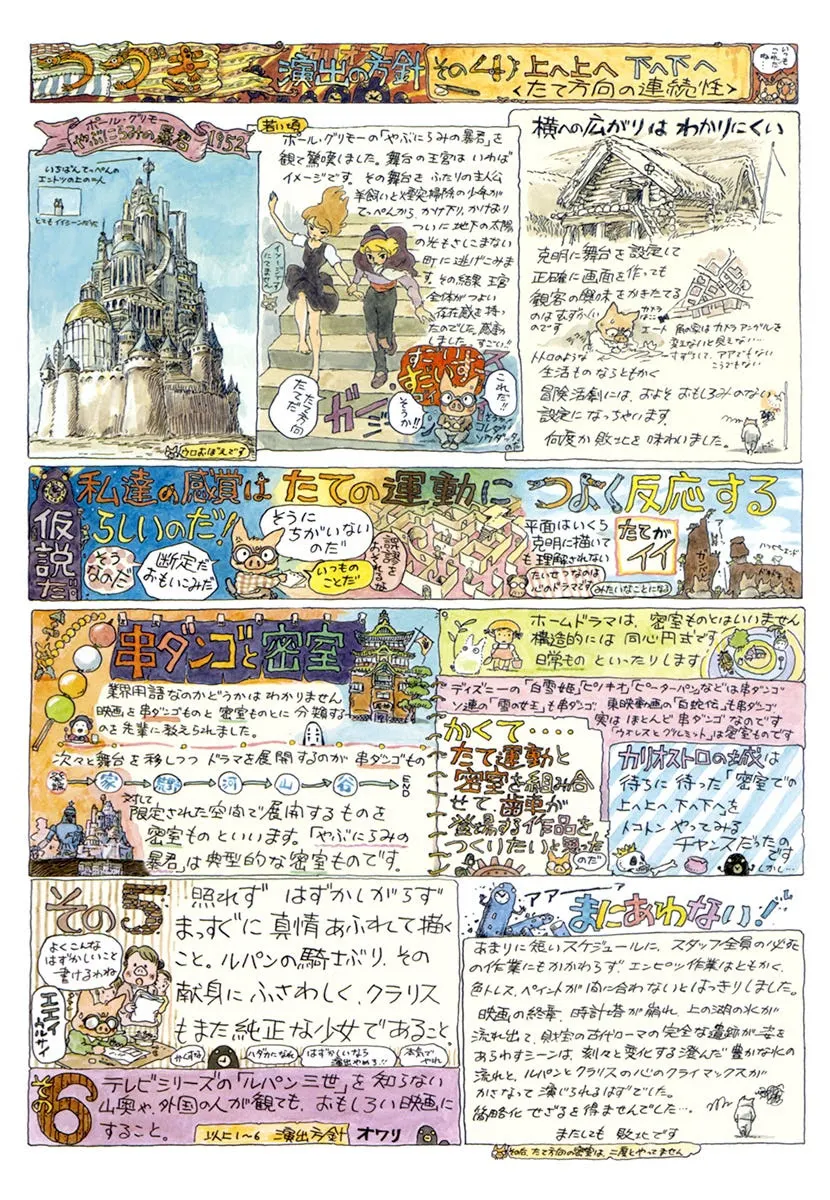 つづき
演出の方針
その4
上へ上へ 下へ下へ
<たて方向の連続性>
いつも
ポール・グリモー
やぶにらみの暴君
1952
いちばんてっぺんの
エントツの上の二人
とてもイイシーンだった
ウロおぼえです
若い頃
ポール・グリモーの「やぶにらみの暴君」を
観て驚嘆しました。舞台の王宮は いわば
イメージです。その舞台を ふたりの主人公
羊飼いと煙突掃除の少年が
てっぺんから、かけ下り、かけおり
ついに地下の太陽
の光もさしこまない
町に逃げこみます
その結果 王宮
全体がつよい
存在感を持っ
たのでした。感動
しました。すごい!!
イメージです
にてません
たて方向
だてだ
ガーン
これだ!!
そうか!!
横への広がりは わかりにくい
克明に舞台を設定して
正確に画面を作っても
観客の興味をかきたてる
のは むずかしい
のです
エート
トトロのような
生活ものならともかく
冒険活劇には、およそ おもしろみのない
設定になっちゃいます
何度か敗北を味わいました。
仮説だ
私達の感覚は たての運動に つよく反応する
らしいのだ!
そう
なのだ
断定だ
おもいこみだ
そうに
ちがいない
のだ
いつもの
ことだ
平面はいくら
克明に描いて
も理解されない
たいせつなのは
心のドラマです
たてが
イイ
みたいなことになる
串ダンゴと密室
業界用語なのかどうかは わかりません
映画を串ダンゴものと密室ものとに分類する
のを先輩に教えられました。
次々と舞台を移しつつ ドラマを展開するのが串ダンゴもの
発端
家
河
山
谷
END
対して
限定された空間で展開するものを
密室ものといいます。「やぶにらみの
暴君」は典型的な密室ものです。
ホームドラマは、密室ものとはいいません
構造的には 同心円式です
日常もの といったりします
ディズニーの「白雪姫」「ピノキオ」「ピーターパン」などは串ダンゴ
ソ連の「雪の女王」も串ダンゴ 東映動画の「白蛇伝」も串ダンゴ
実はほとんど串ダンゴなのです
「ウォレスとグルミット」は密室ものです
かくて‥‥
たて運動と
密室を組み合
せて 歯車が
登場する作品を
つくりたいと思った
のだ
カリオストロの城は
待ちに待った「密室での
上へ上へ、下へ下へ」を
トコトン やってみる
チャンスだったの
です
しかし‥‥
その5
照れず はずかしがらず
まっすぐに 真情あふれて描く
こと。ルパンの騎士ぶり、その
献身に ふさわしく、クラリス
もまた純正な少女であること。
よくこんな
はずかしいこと
書けるわね
エエイ
ウルサイ
かくすな
ハダカになれ
はずかしいなら
演出やめろ!!
本気で
やれ
その
6
テレビシリーズの「ルパン三世」を 知らない
山奥や、外国の人が観ても、おもしろい映画に
すること。
以上1〜6 演出方針 オワリ
アアーーァ
まにあわない!
あまりに短いスケジュールに、スタッフ全員の必死
の作業にもかかわらず、エンピツ作業はともかく、
色トレス、ペイントが間に合わないとはっきりしました。
映画の終章、時計塔が崩れ、上の湖の水が
流れ出て、財宝の古代ローマの完全な遺跡が姿を
あらわすシーンは、刻々と変化する澄んだ豊かな水の
流れと、ルパンとクラリスの心のクライマックスが
かさなって演じられるはずでした。
簡略化せざるを得ませんでした‥‥。
またしても 敗北です
その后、たて方向の密室は、二度とやってません